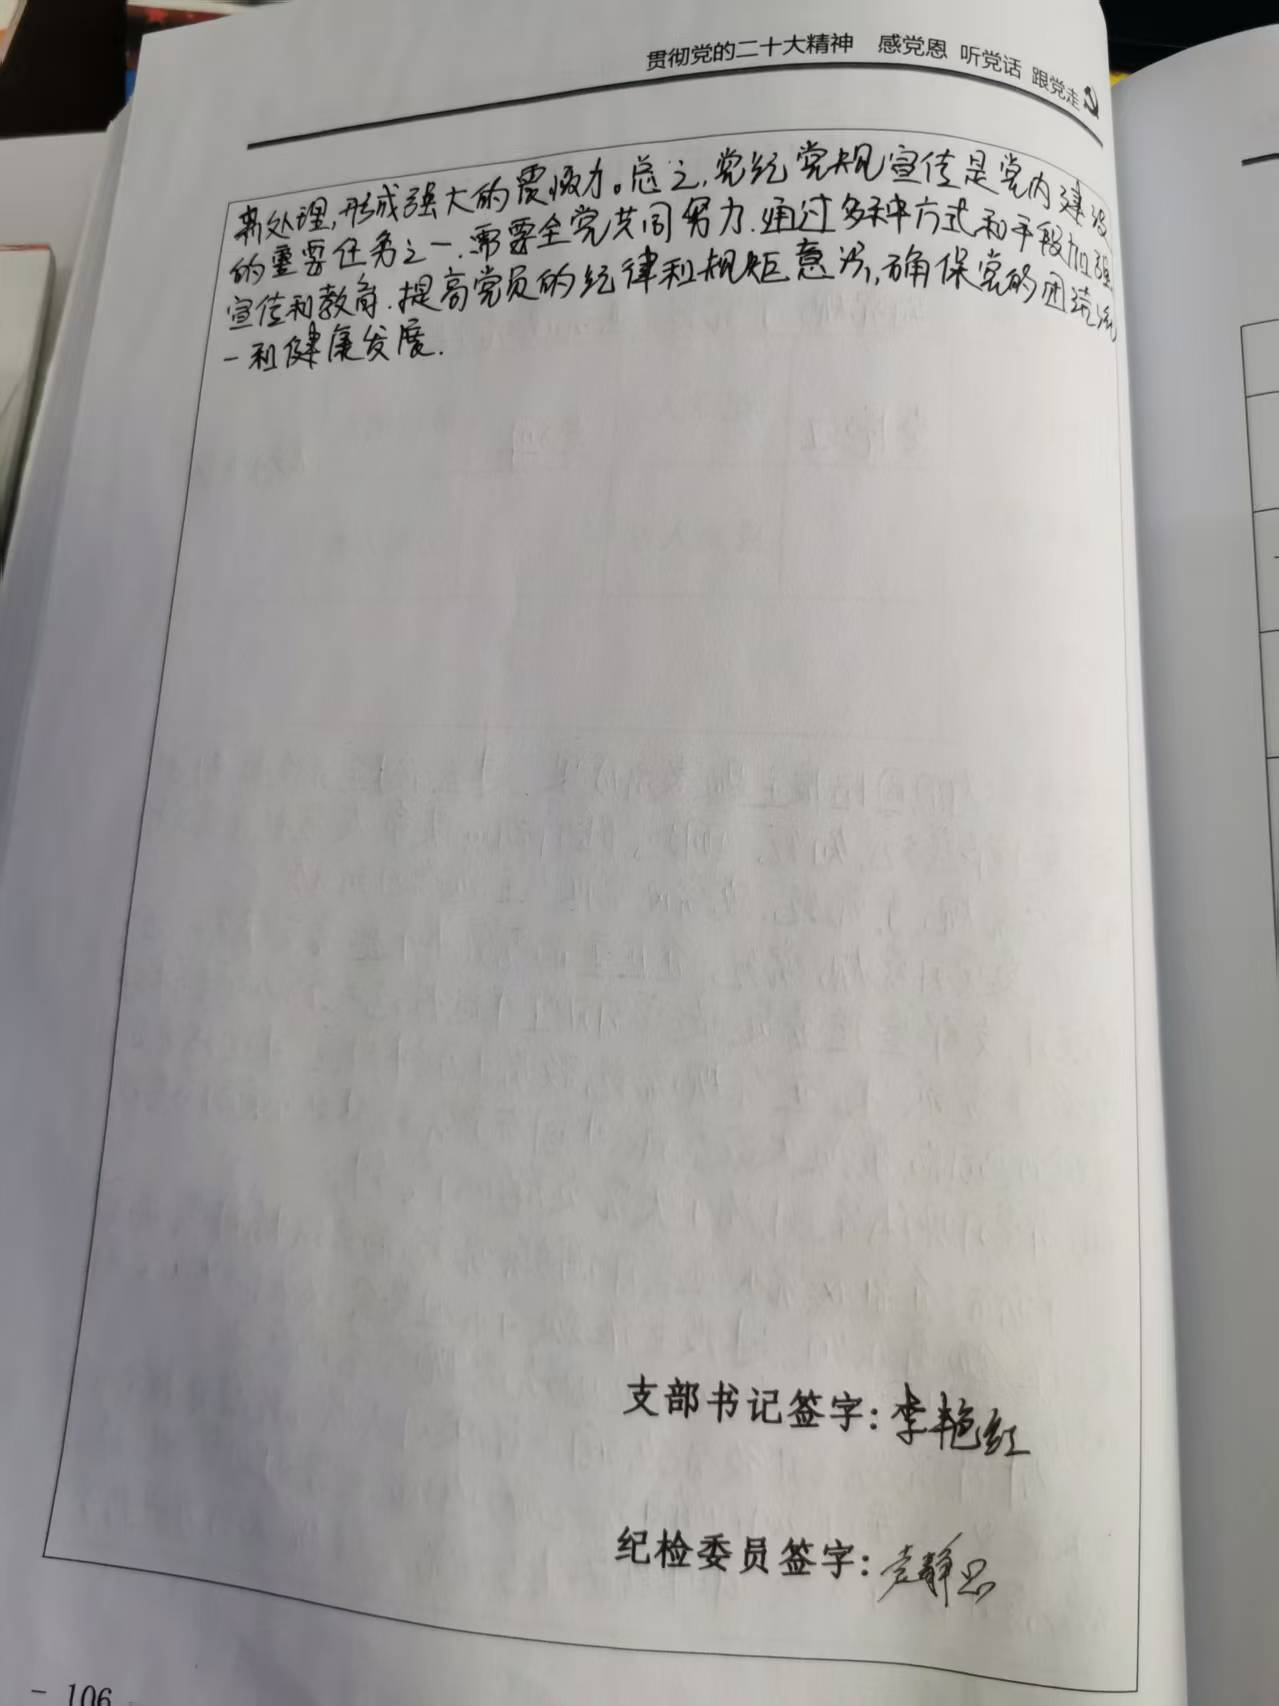 贯彻党的二十大精神　感党恩 听党话 跟党走
肃处理,形成强大的震慑力。总之,党纪党规宣传是党内建设
的重要任务之一.需要全党共同努力.通过多种方式和手段加强
宣传和教育.提高党员的纪律和规矩意识,确保党的团结统
一和健康发展.
支部书记签字:李艳红
纪检委员签字:
- 106